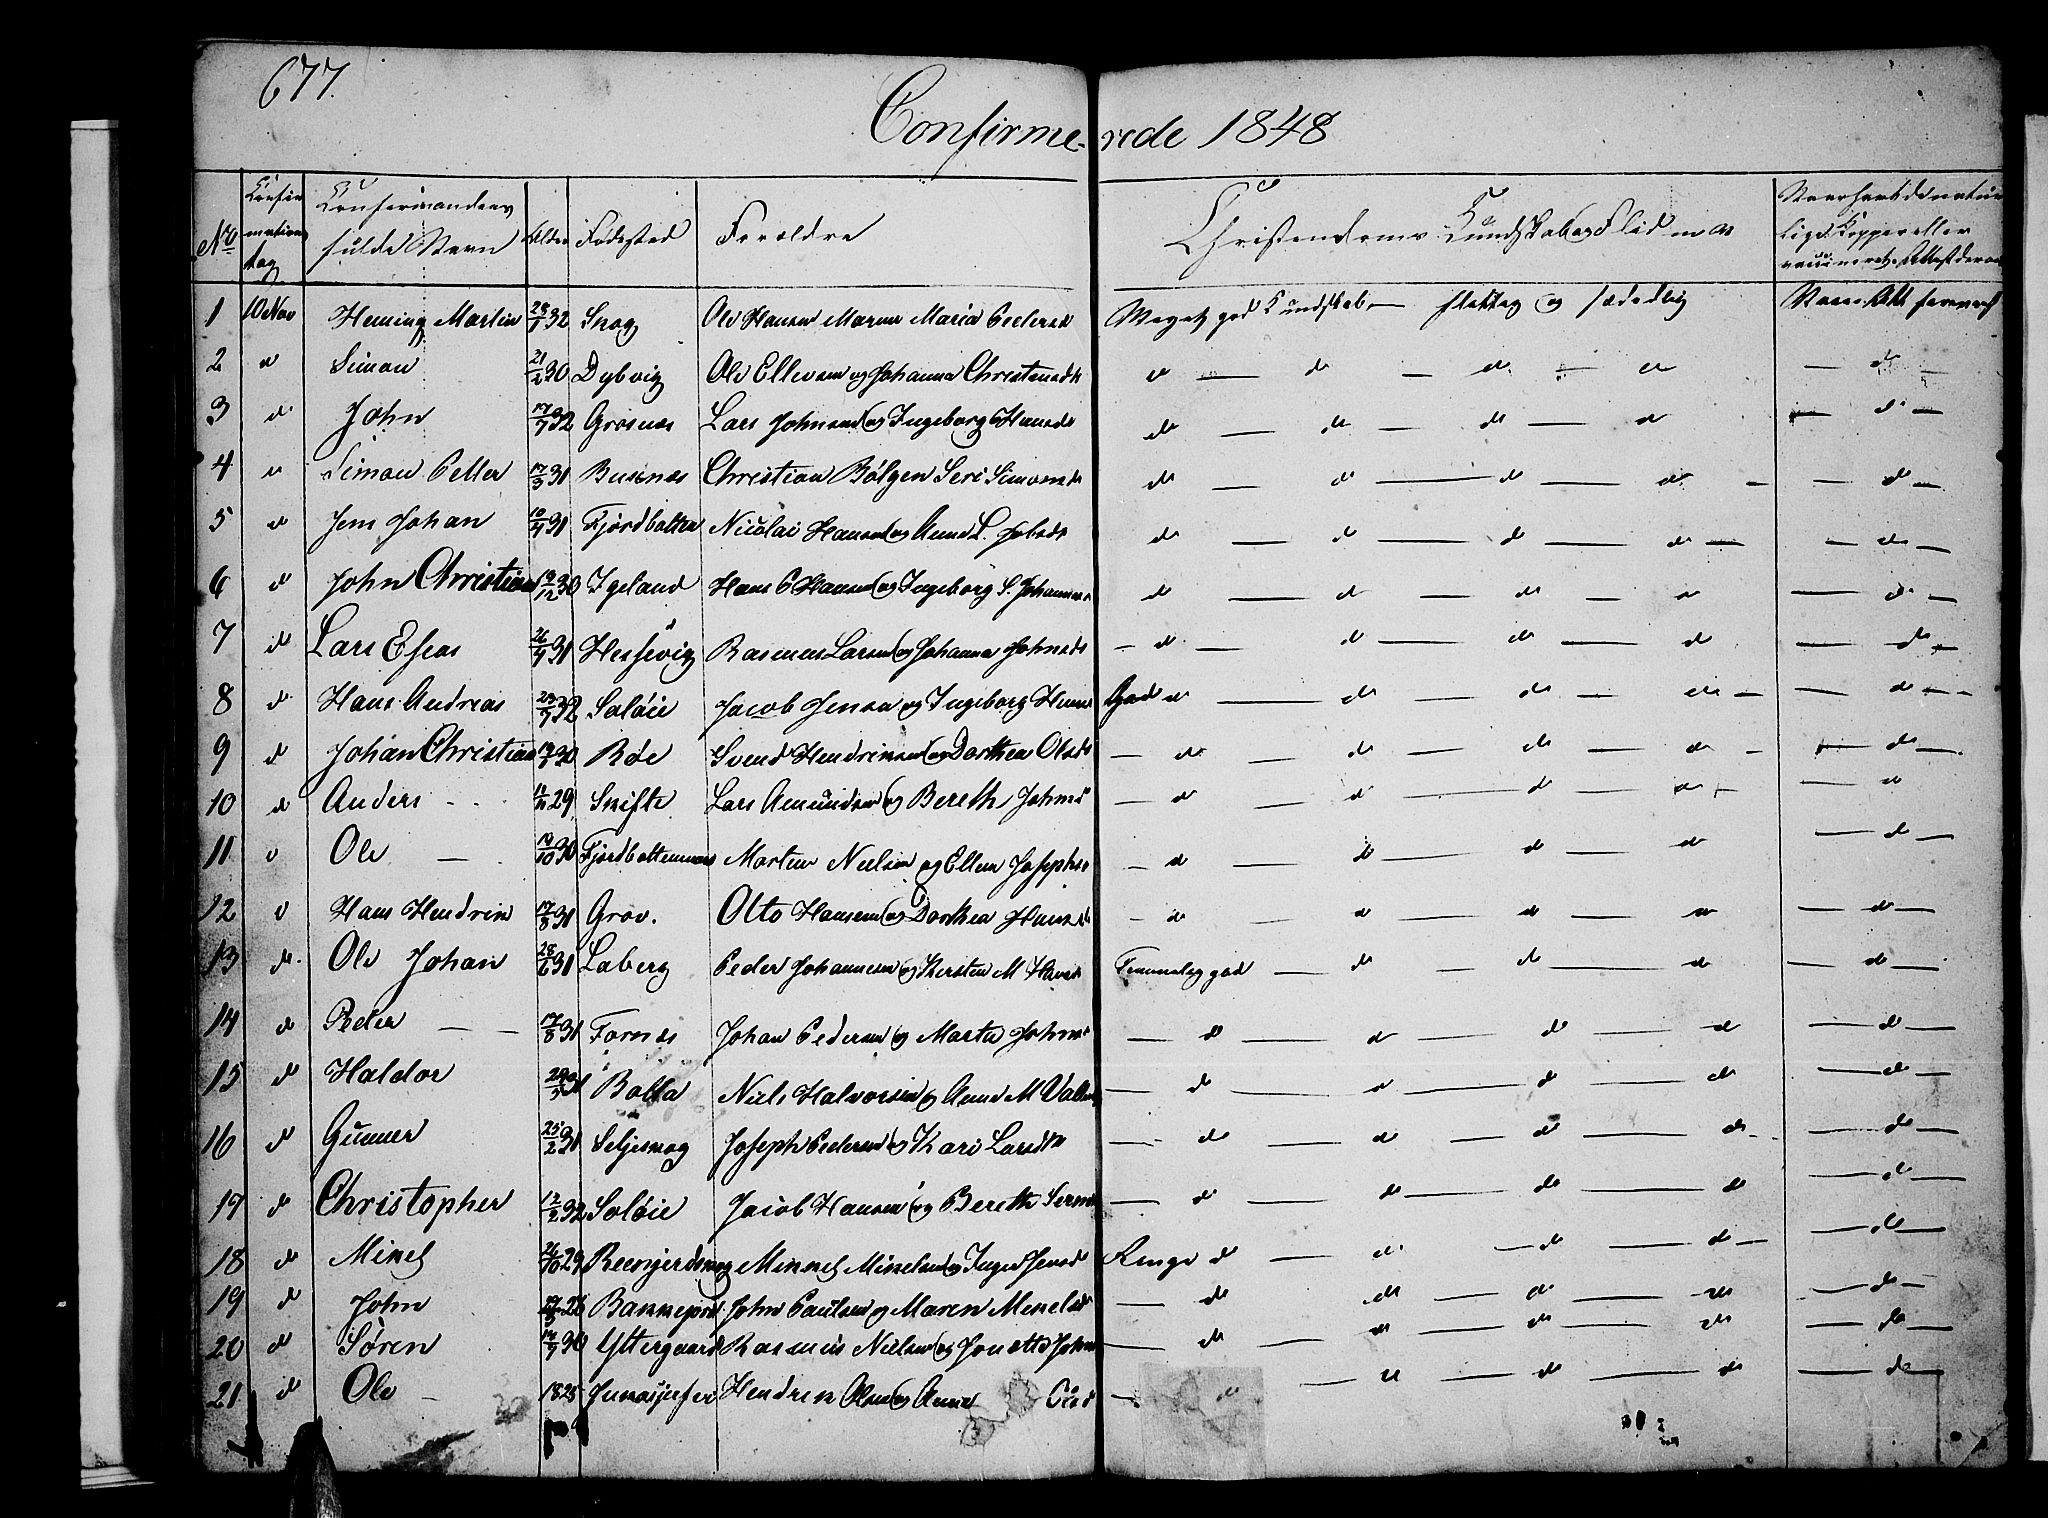 677.
Confirmerede 1848
No Confirmations dag Confirmandens fulde Navn Alder Fødested Forældre Christendoms Kundskab og Flid m m Naar havt de naturlige Kopper eller vaccineret
1 10 Nov Heming Martin 32 Skog Ole Hansen Maren Maria Pedersd Meget god Kundskab flittig og sædelig
2 d Simon 21/2 30 Dybvig Ole Ellevsen og Johanna Christensdr d — d — d — d — d —
3 d John 17/7 32 Grosnæs Lars Johnsen og Ingeborg Hansdr d — d — d — d — d —
4 d Simon Petter 17/3 31 Busnæs Christian Bølgen Seri Simonsdr d — d — d — d — d —
5 d Jens Johan 10/4 31 Fjordbotten Nicolai Hansen og Anne L. Jobsdr d — d — d — d — d —
6 d John Christian 19/12 30 Igeland Hans P Hansen og Ingeborg S. Johannesd d — d — d — d — d —
7 d Lars Eseas 26/9 31 Hessevig Rasmus Larsen og Johanna Johnsdr — d — d — d — d — d —
8 d Hans Andreas 32 Saløie Jacob Jensen og Ingeborg Hansd God d — d — d — d — d —
9 d Johan Christian 30 Røe Svend Hendriksen og Dorthea Olsdr — d — d — d — d — d —
10 d Anders 29 Skifte Lars Amundsen og Bereth Johnsd — d — d — d — d — d
11 d Ole — 30 Fjordbottenmoes Morten Nielsen og Ellen Josephsd — d — d — d — d — d —
12 d Hans Hendrik 17/8 31 Grov. Otto Hansen og Dorthea Hansd — d — d — d — d — d —
13 d Ole Johan 28/6 31 Laberg Peder Johannesen og Kersten M Hansd Temmelig god — d — d — d — d —
14 d Peder — — 17/8 31 Fornæs Johan Pedersen og Marta Johnsd — d — d — d — d — d —
15 d Haldor 31 Bolla Niels Halvorsen og Anne M — d — d — d — d — d —
16 d Gunner 25/2 31 Seljeskog Joseph Pedersen og Kari Larsdtr — d — d — d — d — d —
17 d Christopher 12/2 32 Saløie Jacob Hansen og Bereth — d — d — d — d — d —
18 d Mikel 26/10 29 Mikkel Mikelsen og Inger Jensd Ringe d — d — d — d — d —
19 d John 26 John Paulsen og Maren Mikelsd — d — d — d — d — d —
20 d Søren 30 Yttergaard Rasmus Nielsen og — d — d — d — d — d —
21 d Ole — 1825 Hendrik Olsen og Anna Olsd — d — d — d — d — d —